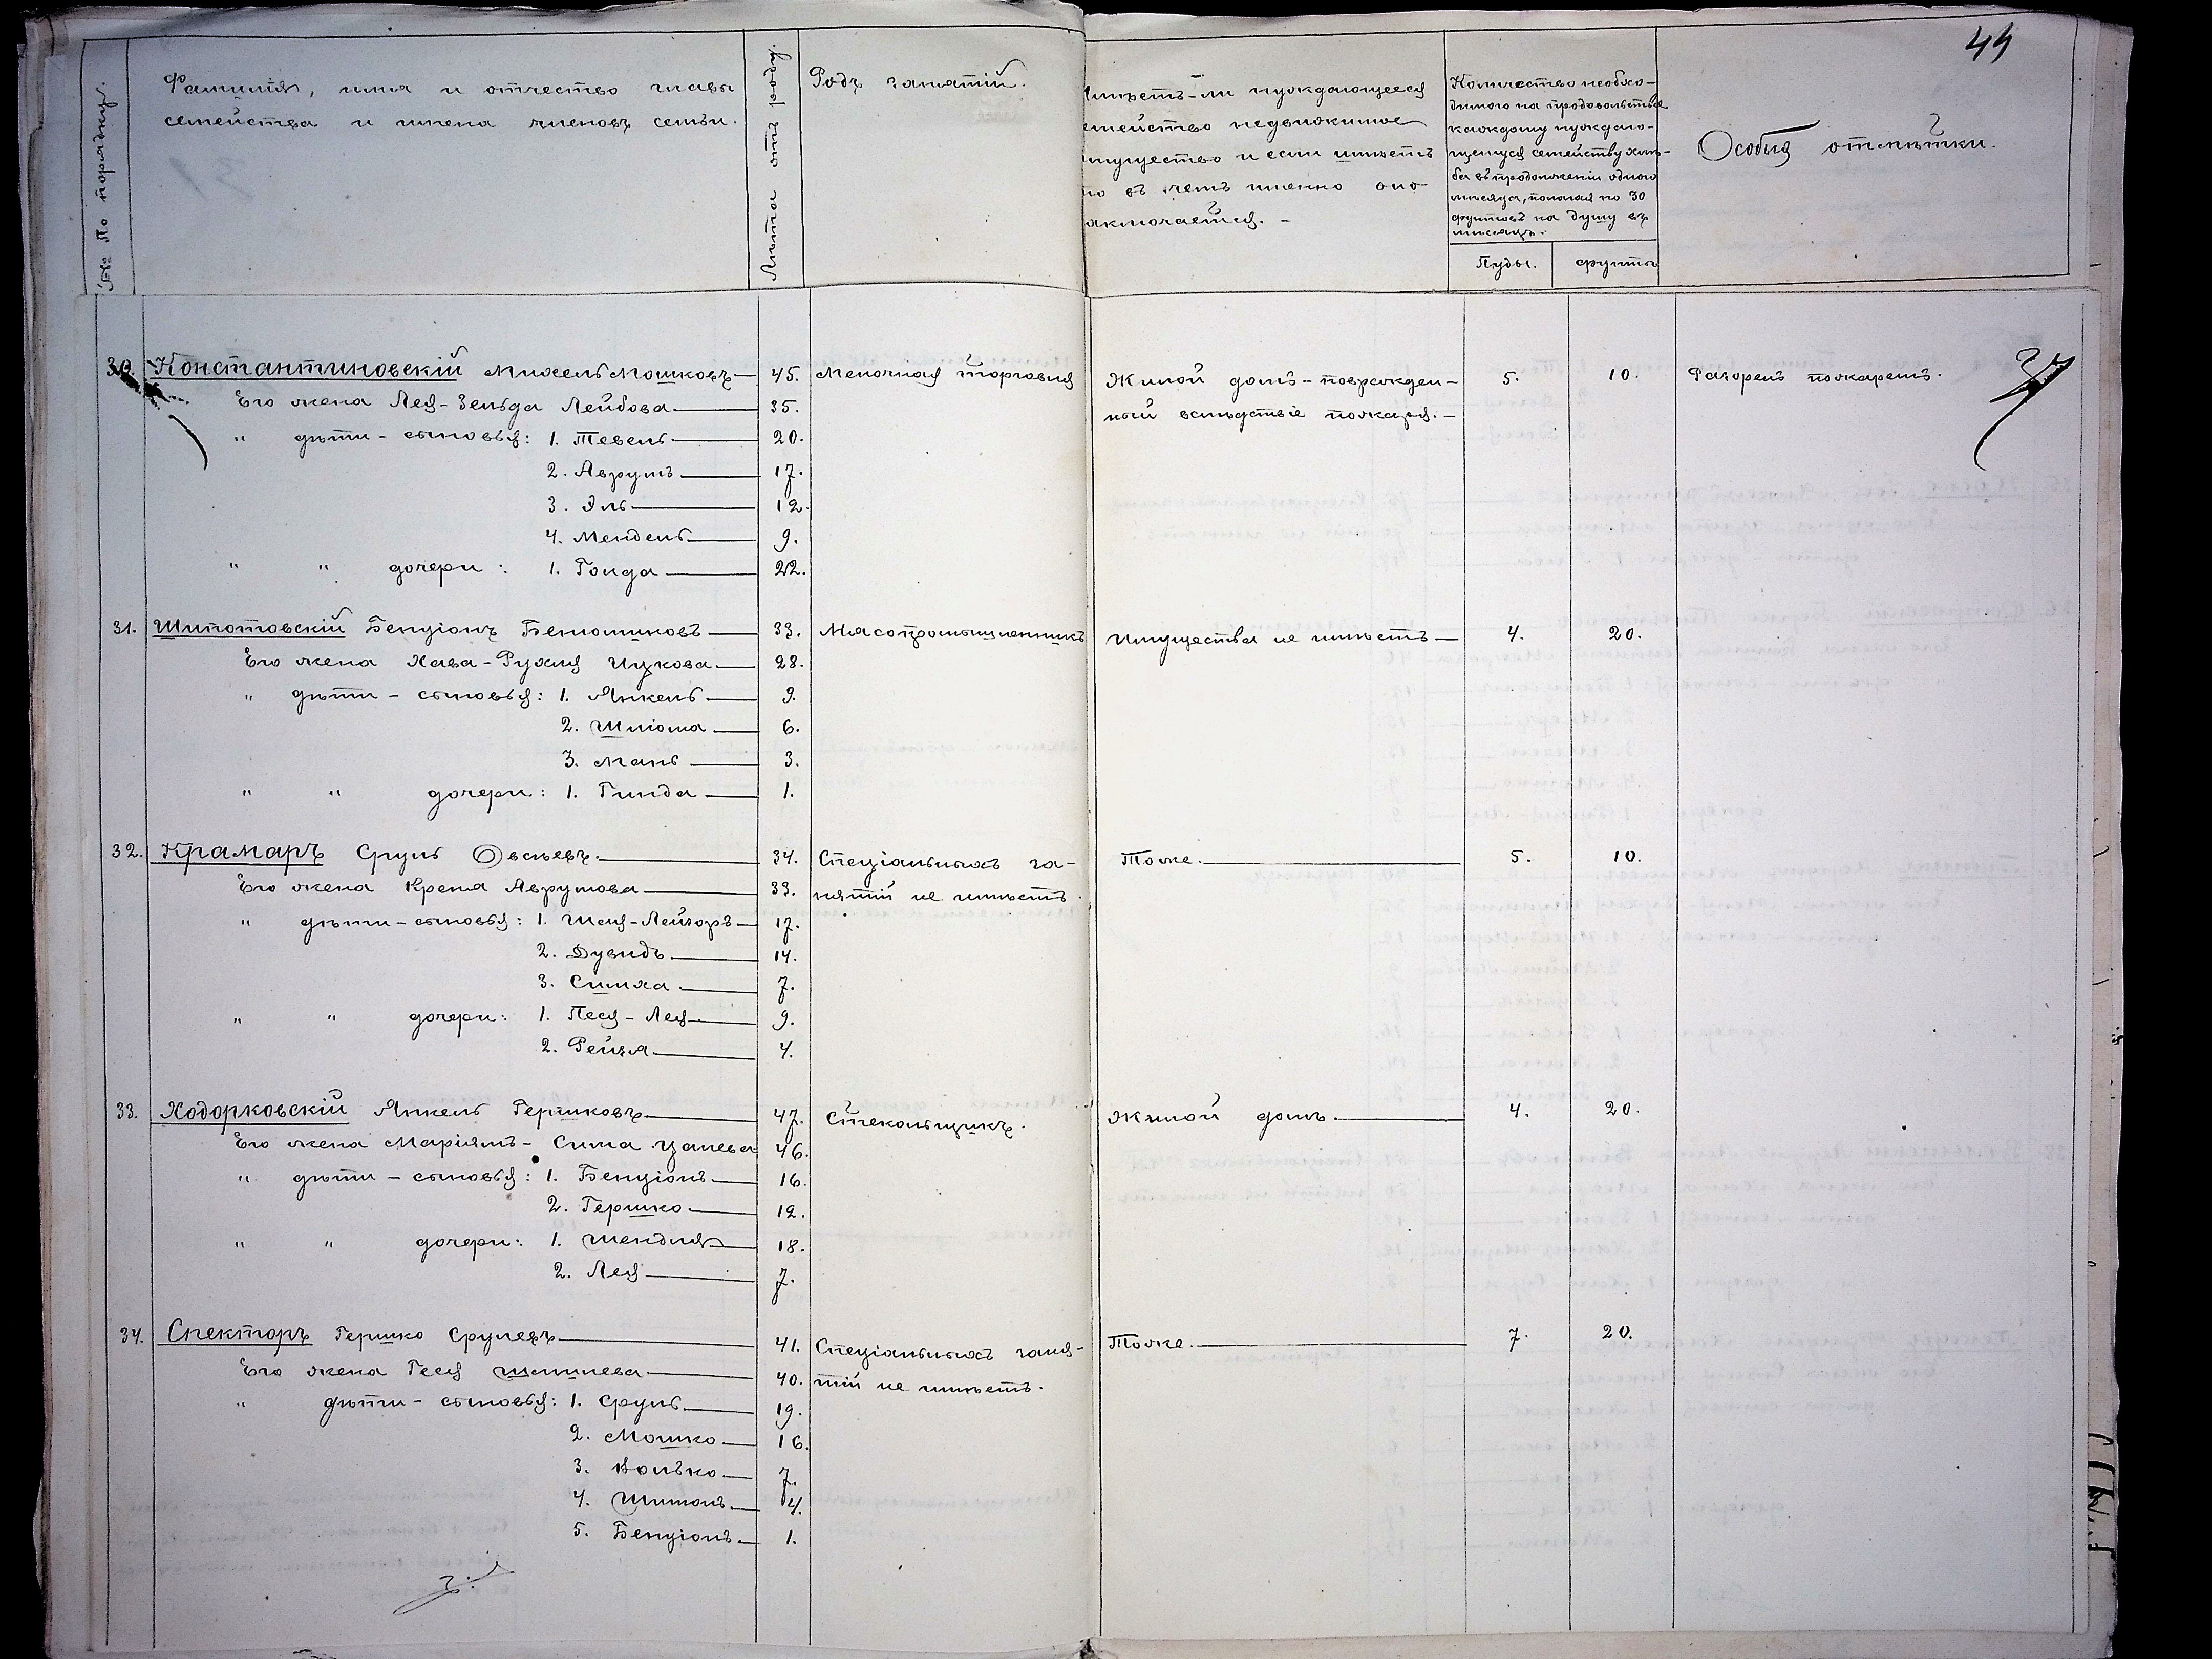 44
№№ По порядку.
Фамилія, имя и отчество главы
семейства и имена членовъ семьи.
Лѣта отъ роду.
Родъ занятій.
Имѣетъ-ли нуждающееся
семейство недвижимое
имущество и если имѣетъ
то въ чемъ именно оно
заключается. –
Количество необхо-
димого на продовольствіе
каждому нуждаю-
щемуся семейству хлѣ-
ба въ продолженіи одного
мѣсяца, полагая по 30
фунтовъ на душу въ
мѣсяцъ.
Пуды. фунты
Особыя отмѣтки.
30. Константиновскій Михель Мошковъ — 45. Мелочная торговля Жилой домъ - поврежден- 5. 10. Разоренъ пожаромъ.
Его жена Лея-Зельда Лейбова — 35. ный вслѣдствіе пожара. –
" дѣти - сыновья: 1. Тевель — 20.
2. Аврумъ — 17.
3. Эль — 12.
4. Мендель — 9.
" " дочери: 1. Голда — 22.
31. Шполовскій Бенціонъ Беніоминовъ — 33. Мясопромышленникъ Имущества не имѣетъ — 4. 20.
Его жена Хава-Рухля Ицкова — 28.
" дѣти - сыновья: 1. Янкель — 9.
2. Шліома — 6.
3. Мань — 3.
" " дочери: 1. Гинда — 1.
32. Крамаръ Сруль Овсѣевъ. — 34. Спеціальныхъ за- Тоже. — 5. 10.
Его жена Крейна Аврумова — 33. нятій не имѣетъ.
" дѣти - сыновья: 1. Шая-Лейзоръ — 17.
2. Дувидъ — 14.
3. Симха. — 7.
" " дочери: 1. Песя-Лея — 9.
2. Рейзя — 4.
33. Ходорковскій Янкель Гершковъ — 47. Стекольщикъ. Жилой домъ. — 4. 20.
Его жена Маріямъ-Сима Цалева 46.
" дѣти - сыновья: 1. Бенціонъ — 16.
2. Гершко. — 12.
" " дочери: 1. Шендля — 18.
2. Лея — 7.
34. Спекторъ Гершко Срулевъ — 41. Спеціальныхъ заня- Тоже. — 7. 20.
Его жена Геся — 40. тій не имѣетъ.
" дѣти - сыновья: 1. Сруль — 19.
2. Мошко — 16.
3. Волько — 7.
4. Шимонъ. — 4.
5. Бенціонъ. — 1.